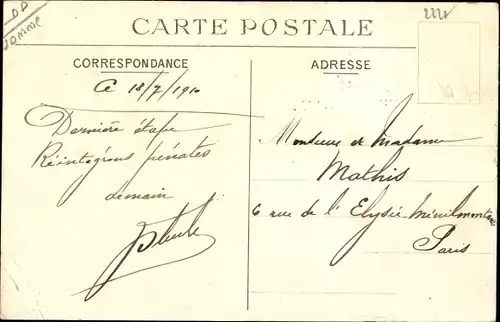 DD
somme
2227
CARTE POSTALE
CORRESPONDANCE
ADRESSE
Ce 18/7/1910
Dernière étape
Réintégrons pénates
demain
Monsieur et Madame
Mathis
6 rue de l'Elysée Ménilmontant
Paris